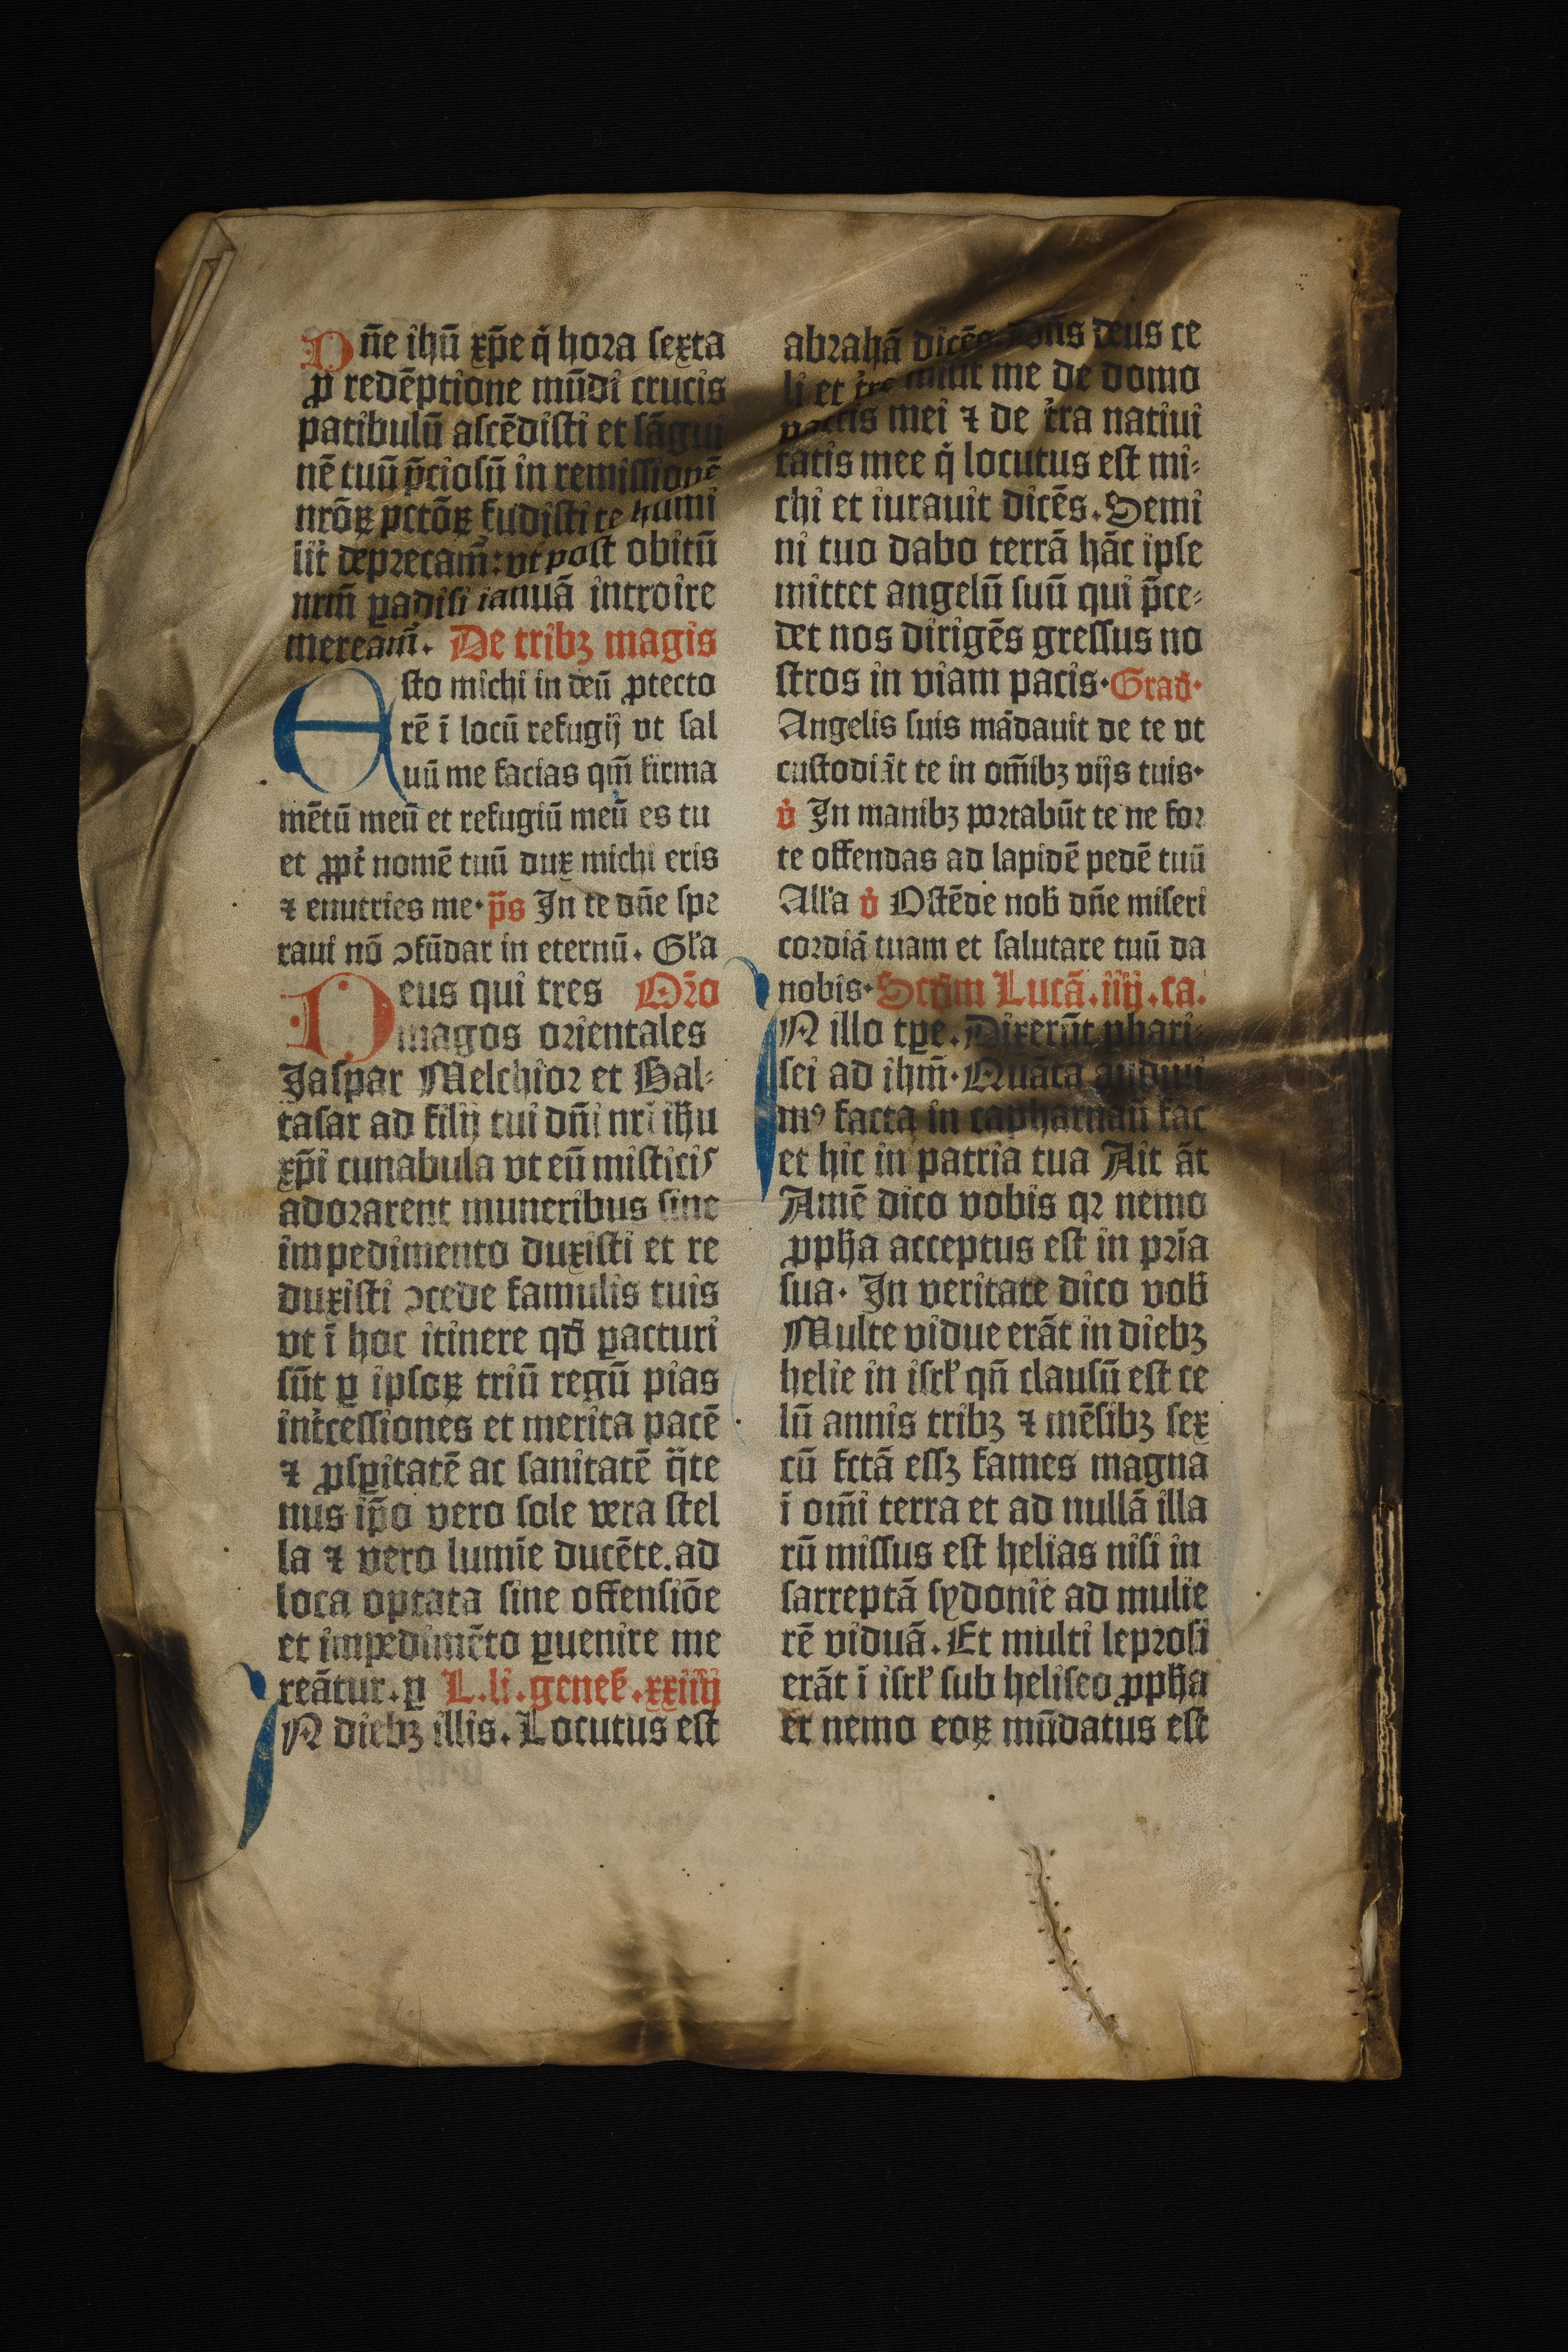 Dñe ihū xp̄e q̇ hora sexta
ꝓ redēptione mūdi crucis
patibulū ascēdisti et sāgui
nē tuū p̄ciosū in remissionē
nrōꝝ pctōꝝ fudisti te humi
lit̛ deprecam̄: vt post obitū
nrm̄ ꝑadisi ianuā introire
mereām̄. De tribꝫ magis
Esto michi in deū ꝓtecto
rē ī locū refugij vt sal
uū me facias qm̄ firma
mētū meū et refugiū meū es tu
et ꝓpt̛ nomē tuū dux michi eris
⁊ enutries me. p̄s In te dñe spe
raui nō ↄfūdar in eternū. Gl̛a
Deus qui tres Or̄o
magos orientales
Jaspar Melchior et Bal⸗
tasar ad filij tui dñi nr̄i ihū
xp̄i cunabula vt eū misticis
adorarent muneribus sine
impedimento duxisti et re
duxisti ↄcede famulis tuis
vt ī hoc itinere qd̄ ꝑacturi
sūt ꝑ ipsoꝝ triū regū pias
int̛cessiones et merita pacē
⁊ ꝓsꝑitatē ac sanitatē q̄te
nus ip̄o vero sole vera stel
la ⁊ vero lumīe ducēte. ad
loca optata sine offensiōe
et impedimēto ꝑuenire me
reātur. ꝑ L. li. genes̄. xxiiij
IN diebꝫ illis. Locutus est
abrahā dicēs. Dñs deus ce
li et t̛re tulit me de domo
patris mei ⁊ de t̛ra natiui
tatis mee q̇ locutus est mi⸗
chi et iurauit dicēs. Semi
ni tuo dabo terrā hāc ipse
mittet angelū suū qui p̄ce⸗
det nos dirigēs gressus no
stros in viam pacis. Grad̄.
Angelis suis mādauit de te vt
custodiāt te in om̄ibꝫ vijs tuis.
v̇ In manibꝫ portabūt te ne for
te offendas ad lapidē pedē tuū
All̛a v̇ Ostēde nob̄ dñe miseri
cordiā tuam et salutare tuū da
nobis. Scd̄m Lucā. iiij. ca.
IN illo tꝑe. Dixerūt phari⸗
sei ad ihm̄. Quāta audiui
mꝰ facta in capharnaū fac
et hic in patria tua Ait āt
Amē dico vobis qꝛ nemo
ꝓph̄a acceptus est in pr̄ia
sua. In veritate dico vob̄
Multe vidue erāt in diebꝫ
helie in isrl̛ qn̄ clausū est ce
lū annis tribꝫ ⁊ mēsibꝫ sex
cū fctā essꝫ fames magna
ī om̄i terra et ad nullā illa
rū missus est helias nisi in
sarreptā sydonie ad mulie
rē viduā. Et multi leprosi
erāt ī isrl̛ sub heliseo ꝓph̄a
et nemo eoꝝ mūdatus est